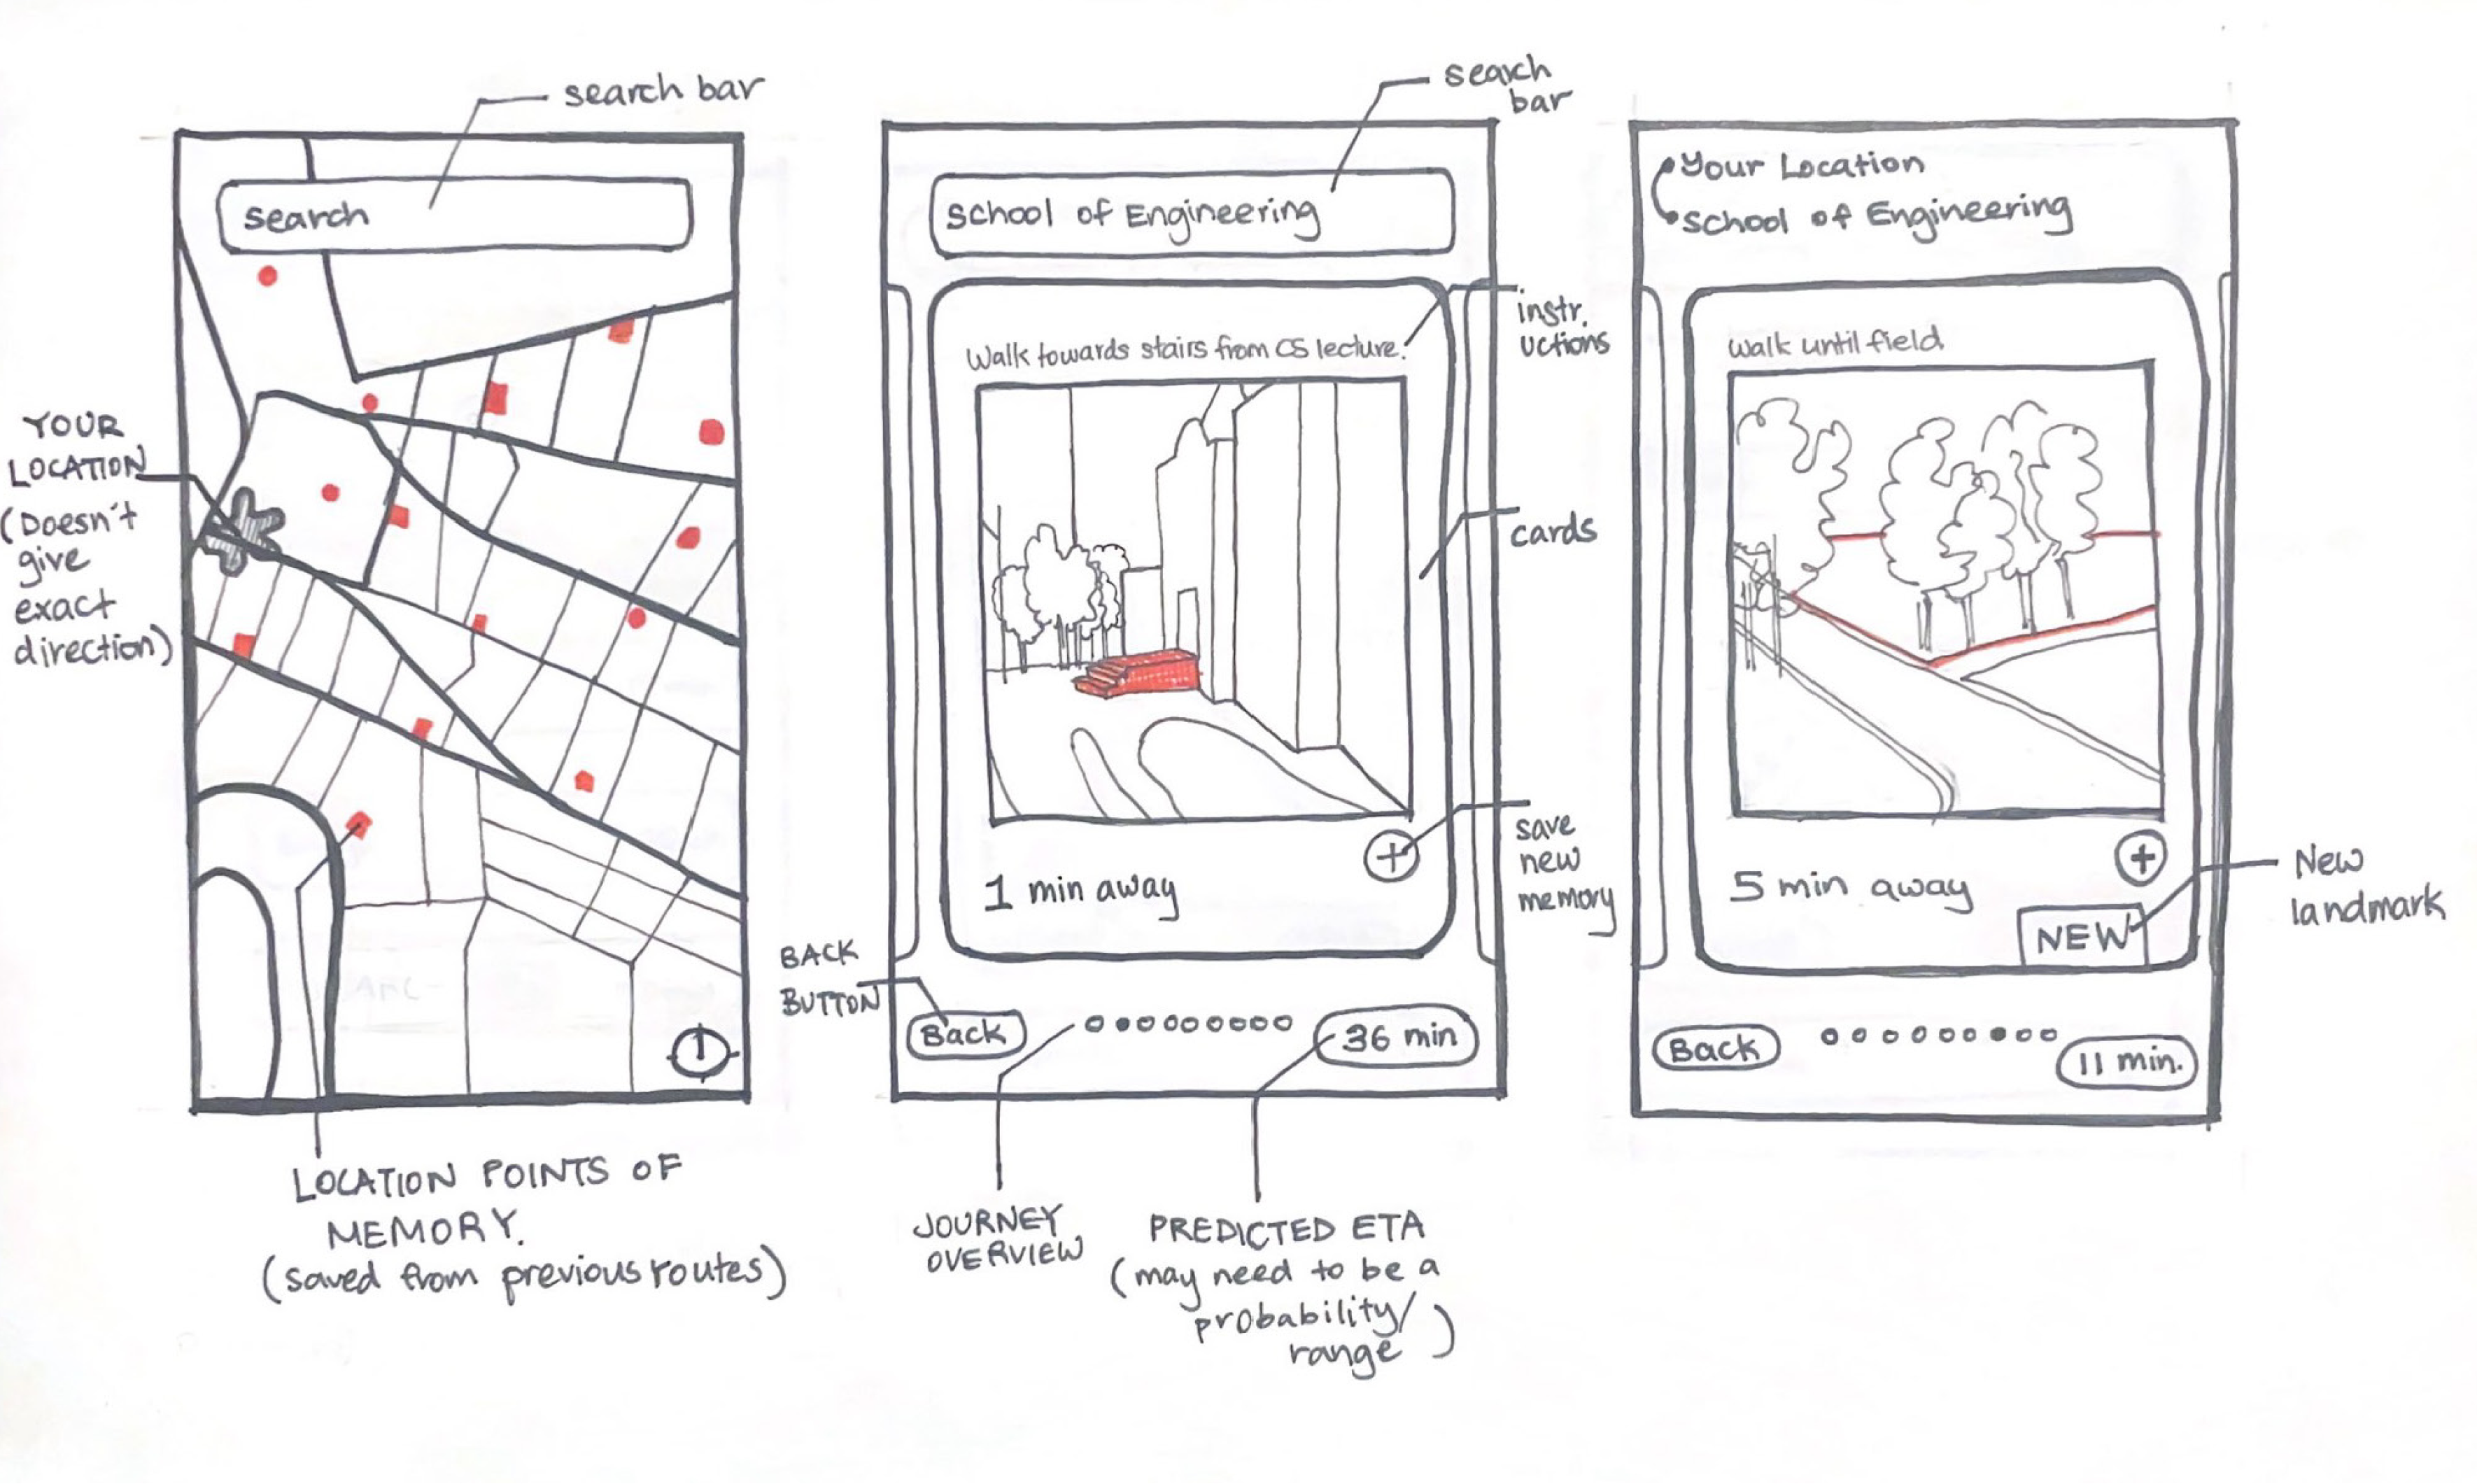 search bar
search
YOUR
LOCATION
(Doesn't
give
exact
direction)
LOCATION POINTS OF
MEMORY.
(saved from previous routes)
search
bar
School of Engineering
Walk towards stairs from CS lecture.
instr.
uctions
cards
save
new
memory
1 min away
BACK
BUTTON
Back
36 min
JOURNEY
OVERVIEW
PREDICTED ETA
(may need to be a
probability/
range)
Your Location
School of Engineering
walk until field.
5 min away
NEW
New
landmark
Back
11 min.